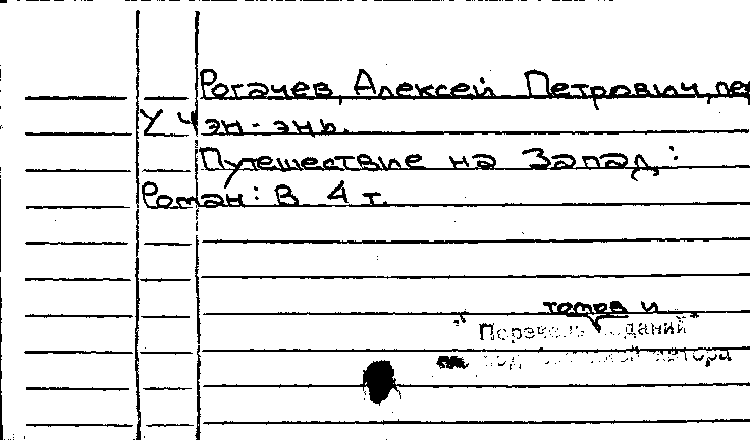 Рогачев, Алексей Петрович, пер
У Чэн-энь.
Путешествие на Запад:
Роман: В 4 т.
томов и
"Перечень изданий"
под автора